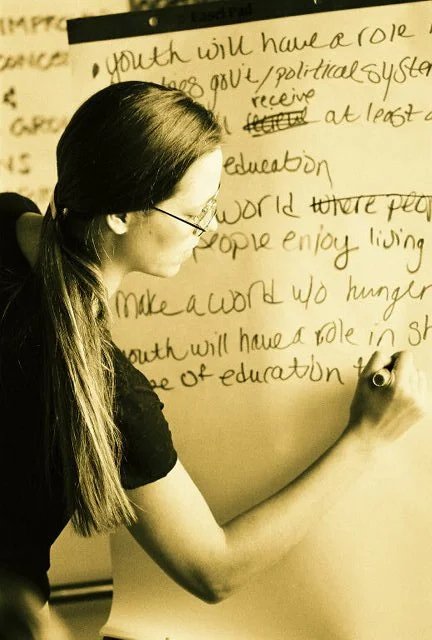 Easel Pad
IMPRO
CONCE
&
youth will have a role
gov't/political syste
receive
at least
education
world where peo
people enjoy living
Make a world w/o hunger
youth will have a role in sh
of education t